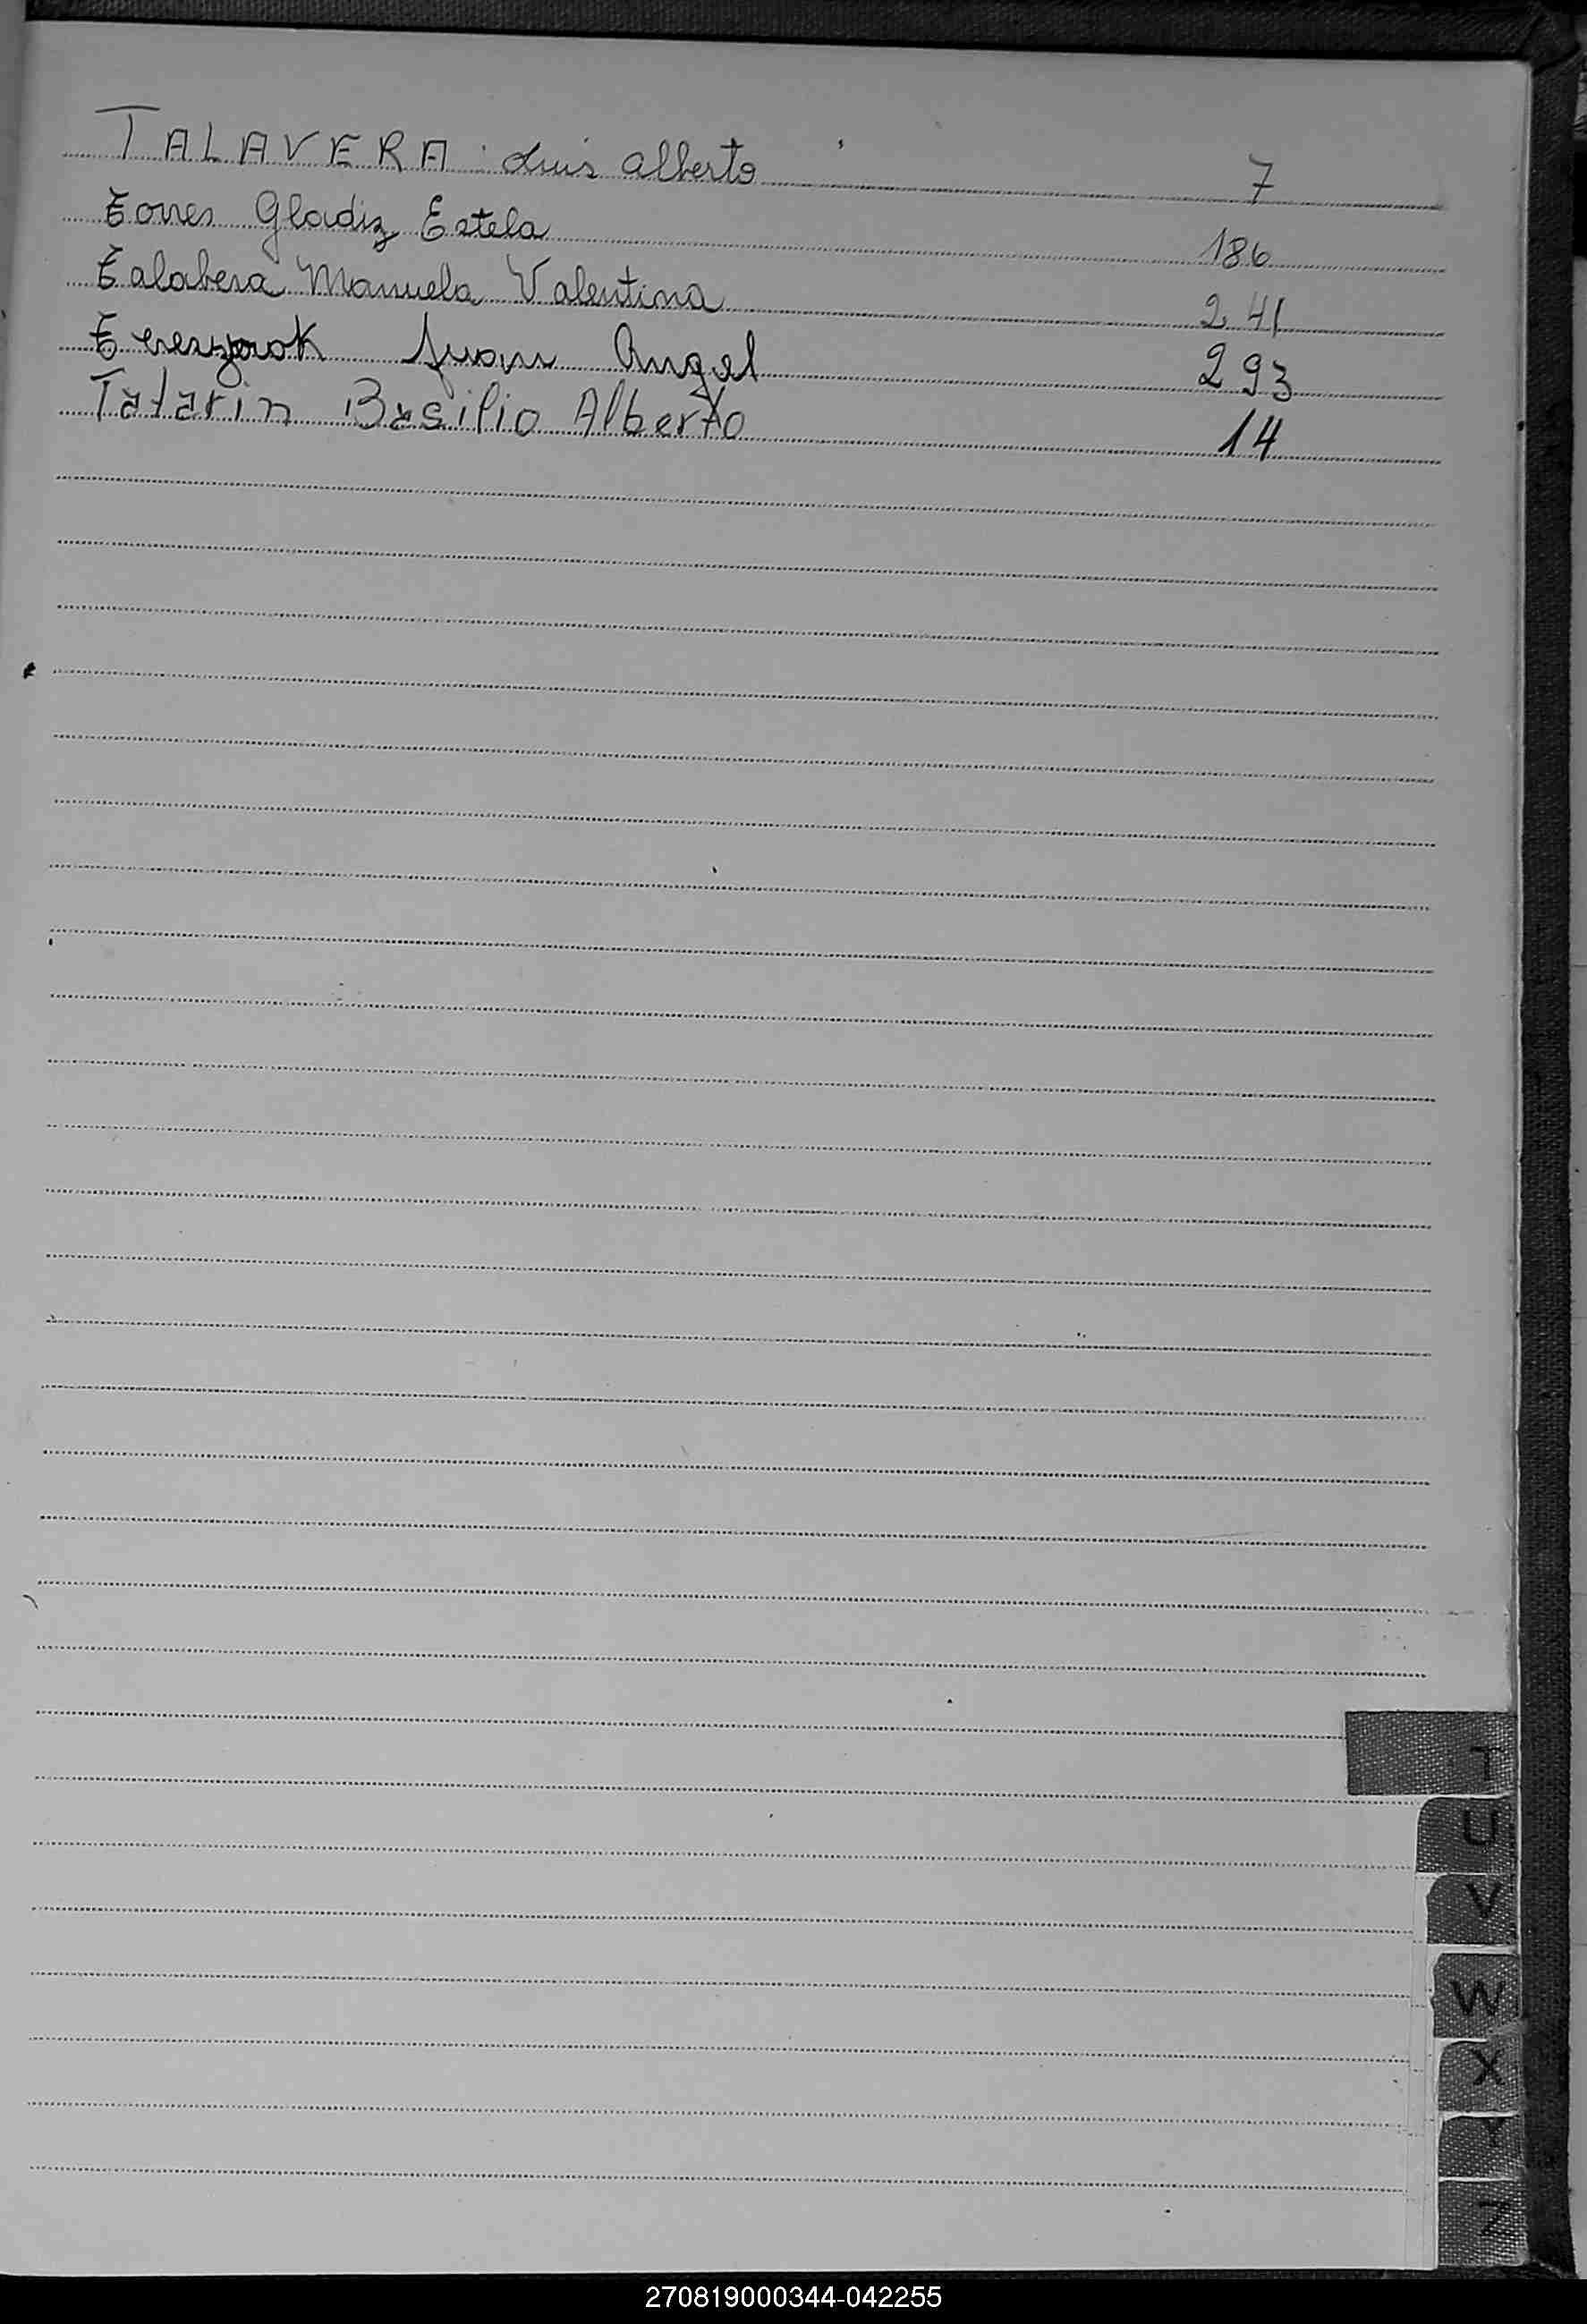 TALAVERA Luis Alberto 7
Torres Gladiz Estela 186
Talabera Manuela Valentina 241
Juan Angel 293
Tatarin Basilio Alberto 14
T
U
V
W
X
Y
Z
270819000344-042255